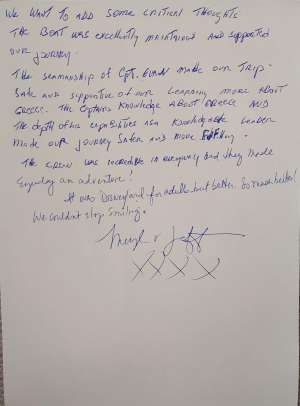 We WANT TO ADD Some CRITICAL Thoughts.
The BOAT WAS excellently maintained AND supported
our journey.
The seamanship of Cpt. made our Trip
Safe and supportive of our Learning more About
Greece. The Captains Knowledge About Greece AND
The depth of his capabilities as a Knowledgeable Leader
Made our Journey Safer and more.
The crew was incredible in everyway and they made
Enjoying an adventure!
It was Disneyland for adults but better. So much better!
We couldn't stop Smiling.
XXXX